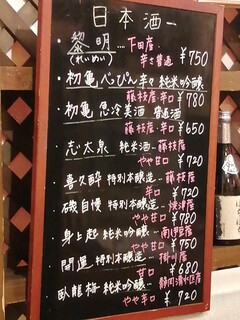 日本酒
・黎明…下田産
(れいめい) 辛さ普通 ¥750
・初亀 べっぴん辛口 純米吟醸
藤枝産・辛口 ¥780
・初亀 急冷美酒 普通酒
藤枝産・辛口 ¥650
・志太泉 純米酒…藤枝産
やや甘口 ¥720
・喜久酔 特別本醸造…藤枝産
辛口 ¥720
・磯自慢 特別本醸造…焼津産
やや甘口 ¥780
・身上起 純米吟醸…南伊豆産
やや甘口 ¥750
・開運 特別本醸造…掛川産
甘口 ¥680
・臥龍梅 純米吟醸…静岡清水区産
やや辛口 ¥720